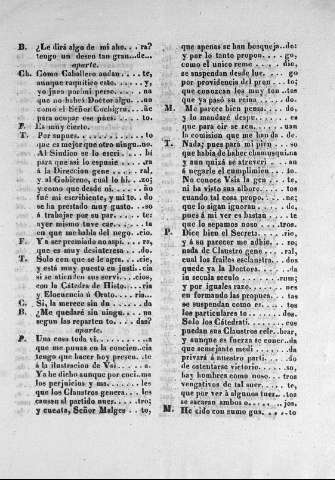 B. ¿Le dirá algo de mi aho . . ra?
tengo un deseo tan gran...de...
aparte.
Ch. Como Caballero andan . . . te,
aunque raquitico este . . . . . y,
yo juro por mi perse . . . . na
que no habrá Doctor algu . . na
como el Señor Cachigra . . . ñe
para ocupar ese pues . . . . to.
F. Es muy cierto.
T. Por supues. . . . . . . . . . to
que es mejor que otro ningu..no
Al Síndico se lo escri. . . . bí
para que así lo espusie . . . ra
á la Direccion gene . . . . ral,
y al Gobierno, cual lo hi. . zo;
y como que desde ni. . . . ño
fué mi escribiente, y mi to. . do
se ha prestado muy gusto. . . so
á trabajar por su par . . . . te:
ayer mismo tuve car. . . . . ta
en que me habla del nego. .cio.
F. Ya se premiado no aspi. . ra,
que es muy desinteresa . . . do.
T. Solo con que se le agra. . cie,
y está muy puesto en justi. . cia
si se atienden sus servi. . .cios,
con la Cátedra de Histo. . . ria
y Elocuencia ó Orato. . . . .ria.
C. Sí, la merece sin du . . . . da
B. ¿Me quedaré sin ningu. . . na
segun las reparten to. . . das?
aparte.
P. Una cosa todavi. . . . . . . a
que me punza en la concien. .cia
tengo que hacer hoy presen. .te
á la ilustracion de Vsi . . . . a.
Ya he dicho aunque por enci..ma
los perjuicios y ma. . . . . . les
que los Claustros genera. . . les
causan al partido nues. . . .tro;
y cuenta, Señor Malges . . . to,
que apenas se han bosqueja..do:
y por lo tanto propon . . . .go,
como el unico reme . . . . dio,
se suspendan desde lue. . . go
por providencia del pron . . to;
que conozcan los muy ton . .tos
que ya pasó su reina . . . . do.
M. Me parece bien pensa. . . .do,
y lo mandaré despa. . . . . .cio
que para oir se reu. . . . . nan
la comision que me han da . de.
T. Nada; pues para mi pien . . so
que habia de haber chamusqui.na
y aun quizá se atreveri . . . an
á negarle el cumplimien . . .to.
No conoce Vsía la gen. . . . te,
ni ha visto sus albore. . . . tos
cuando tal cosa propo. . . .ne;
que lo sigan ignoran . . . . do,
pues á mi ver es bastan . . .te
que lo sepamos noso . . . .tros.
P. Dice bien el Secreta. . . . rio,
y á su parecer me adhie. . . ro;
nada de Claustro gene . . . .ral,
cual los frailes esclaustra . .dos
quede ya la Doctora. . . . . da
in sæcula sæculo . . . . . rum;
y por iguales razo. . . . . .nes
en formando las propues. . . tas
se suspendan como es . . . . tos
los particulares to . . . . . dos.
Solo los Catedráti. . . . . . cos
puedan sus Claustros cele..brar,
y aunque es fuerza se conce..da
que semejante medi . . . . .da
privará á nuestro parti. . . .do
de ostentarse victorio. . . . .so,
hay hombres como noso . . tros
vengativos de tal suer . . . .te,
que por ver á algunos tuer. .tos
se sacarán ambos o. . . . . jos.
M. He oido con sumo gus. . . .to